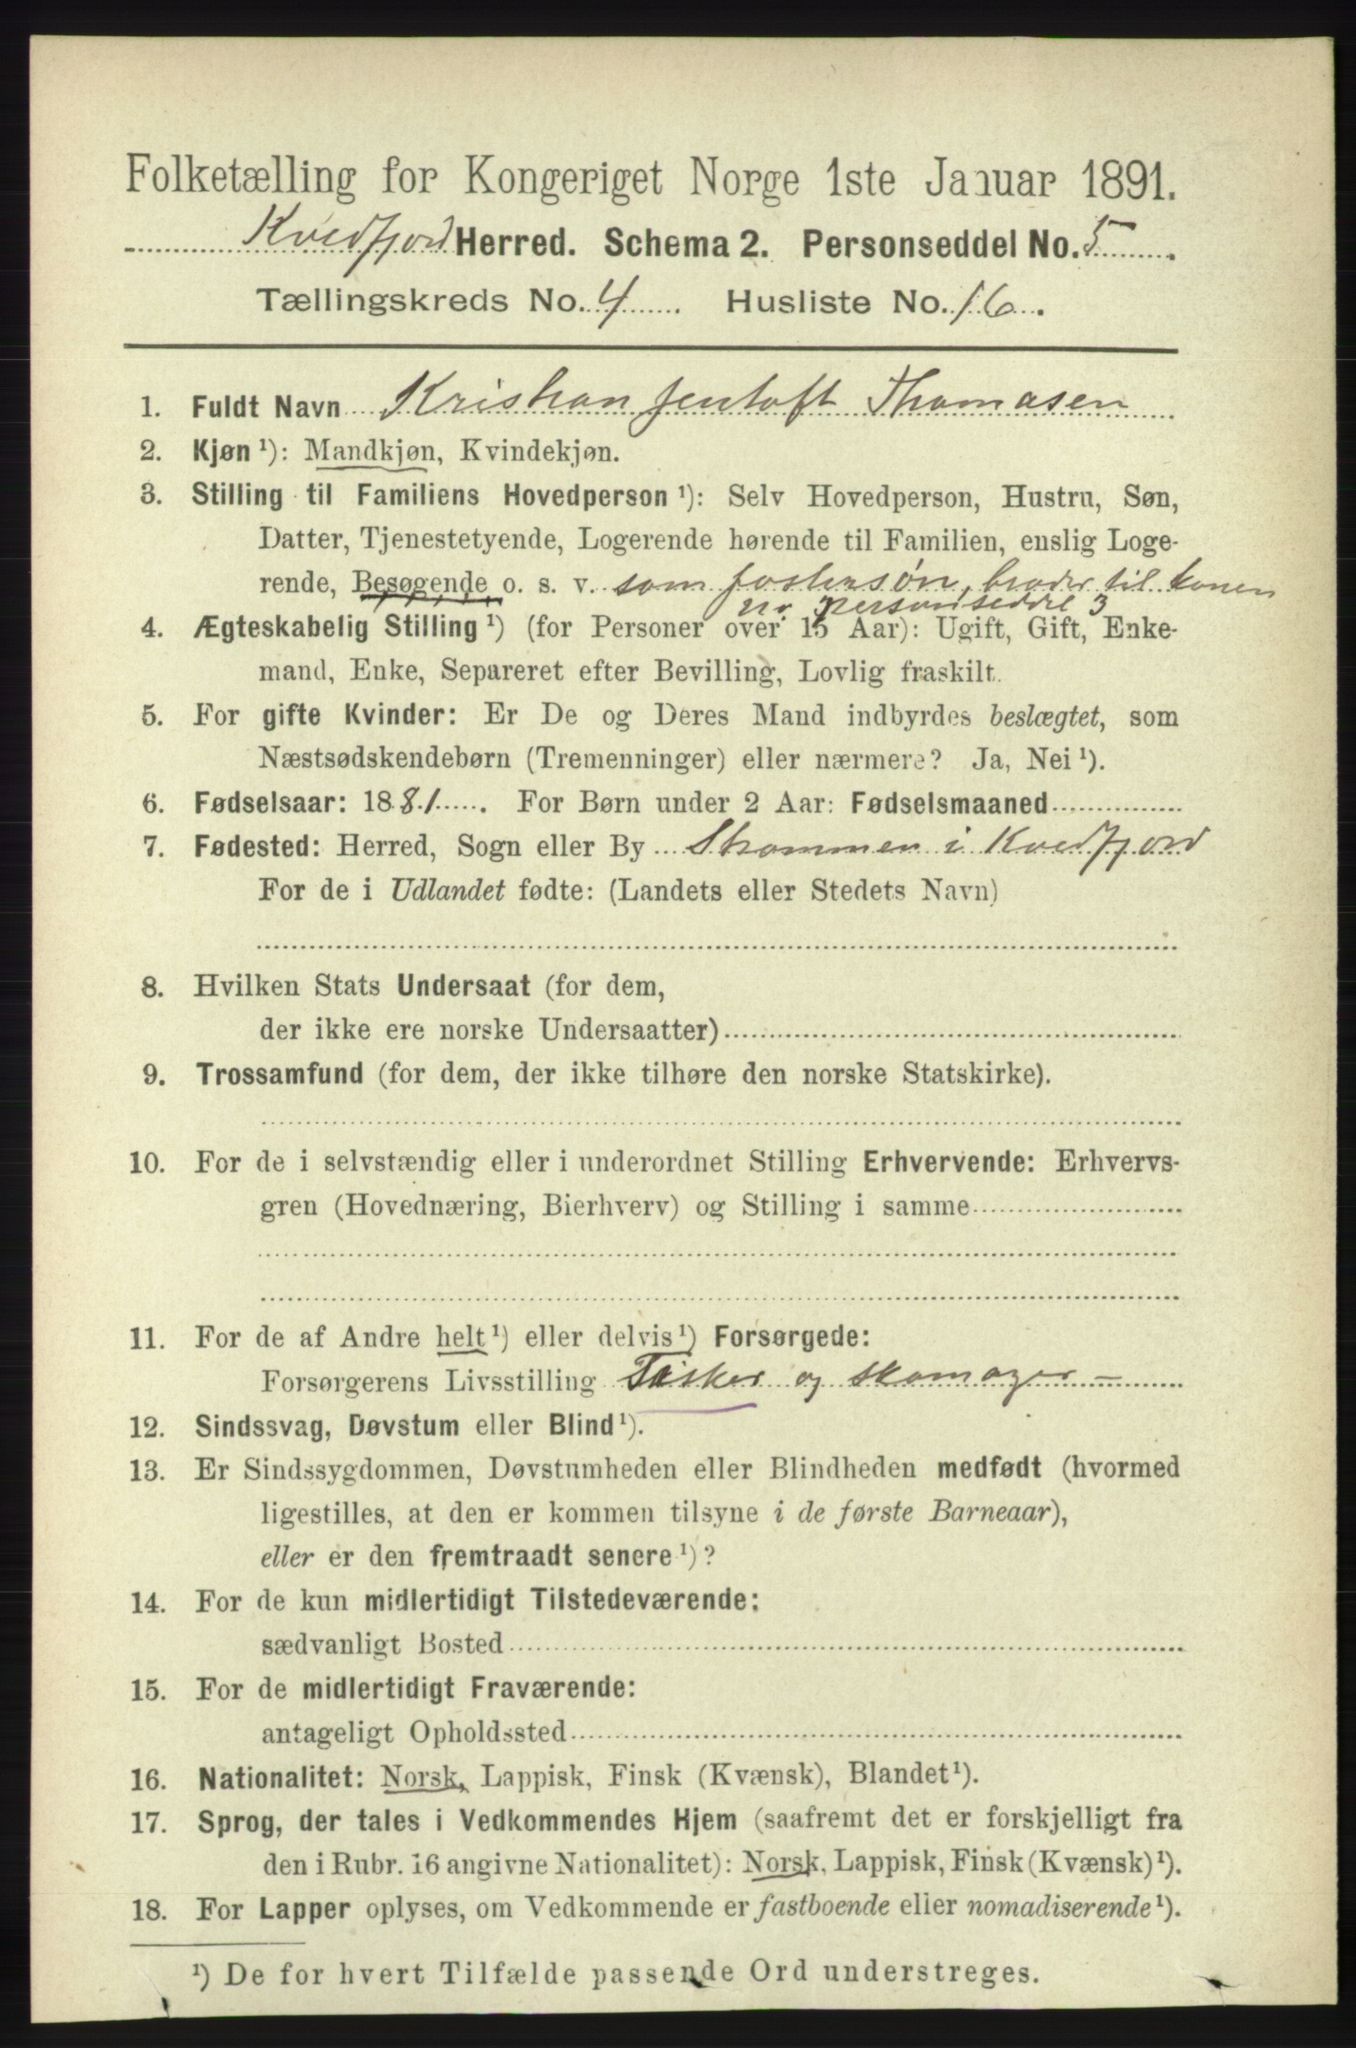 Folketælling for Kongeriget Norge 1ste Januar 1891.
Kvedfjord Herred. Schema 2. Personseddel No. 5
Tællingskreds No. 4 Husliste No. 16.
1. Fuldt Navn Kristian Jentoft Thomasen
2. Kjøn ¹): Mandkjøn, Kvindekjøn.
3. Stilling til Familiens Hovedperson ¹): Selv Hovedperson, Hustru, Søn,
Datter, Tjenestetyende, Logerende hørende til Familien, enslig Loge-
rende, Besøgende o. s. v. som fostersøn, broder til konen
no personseddel 3
4. Ægteskabelig Stilling ¹) (for Personer over 15 Aar): Ugift, Gift, Enke-
mand, Enke, Separeret efter Bevilling, Lovlig fraskilt.
5. For gifte Kvinder: Er De og Deres Mand indbyrdes beslægtet, som
Næstsødskendebørn (Tremenninger) eller nærmere? Ja, Nei ¹).
6. Fødselsaar: 1881. For Børn under 2 Aar: Fødselsmaaned
7. Fødested: Herred, Sogn eller By Strømmen i Kvedfjord
For de i Udlandet fødte: (Landets eller Stedets Navn)
8. Hvilken Stats Undersaat (for dem,
der ikke ere norske Undersaatter)
9. Trossamfund (for dem, der ikke tilhøre den norske Statskirke).
10. For de i selvstændig eller i underordnet Stilling Erhvervende: Erhvervs-
gren (Hovednæring, Bierhverv) og Stilling i samme
11. For de af Andre helt ¹) eller delvis ¹) Forsørgede:
Forsørgerens Livsstilling Fisker og skomager —
12. Sindssvag, Døvstum eller Blind ¹).
13. Er Sindssygdommen, Døvstumheden eller Blindheden medfødt (hvormed
ligestilles, at den er kommen tilsyne i de første Barneaar),
eller er den fremtraadt senere ¹)?
14. For de kun midlertidigt Tilstedeværende:
sædvanligt Bosted
15. For de midlertidigt Fraværende:
antageligt Opholdssted
16. Nationalitet: Norsk, Lappisk, Finsk (Kvænsk), Blandet ¹).
17. Sprog, der tales i Vedkommendes Hjem (saafremt det er forskjelligt fra
den i Rubr. 16 angivne Nationalitet): Norsk, Lappisk, Finsk (Kvænsk) ¹).
18. For Lapper oplyses, om Vedkommende er fastboende eller nomadiserende ¹).
¹) De for hvert Tilfælde passende Ord understreges.